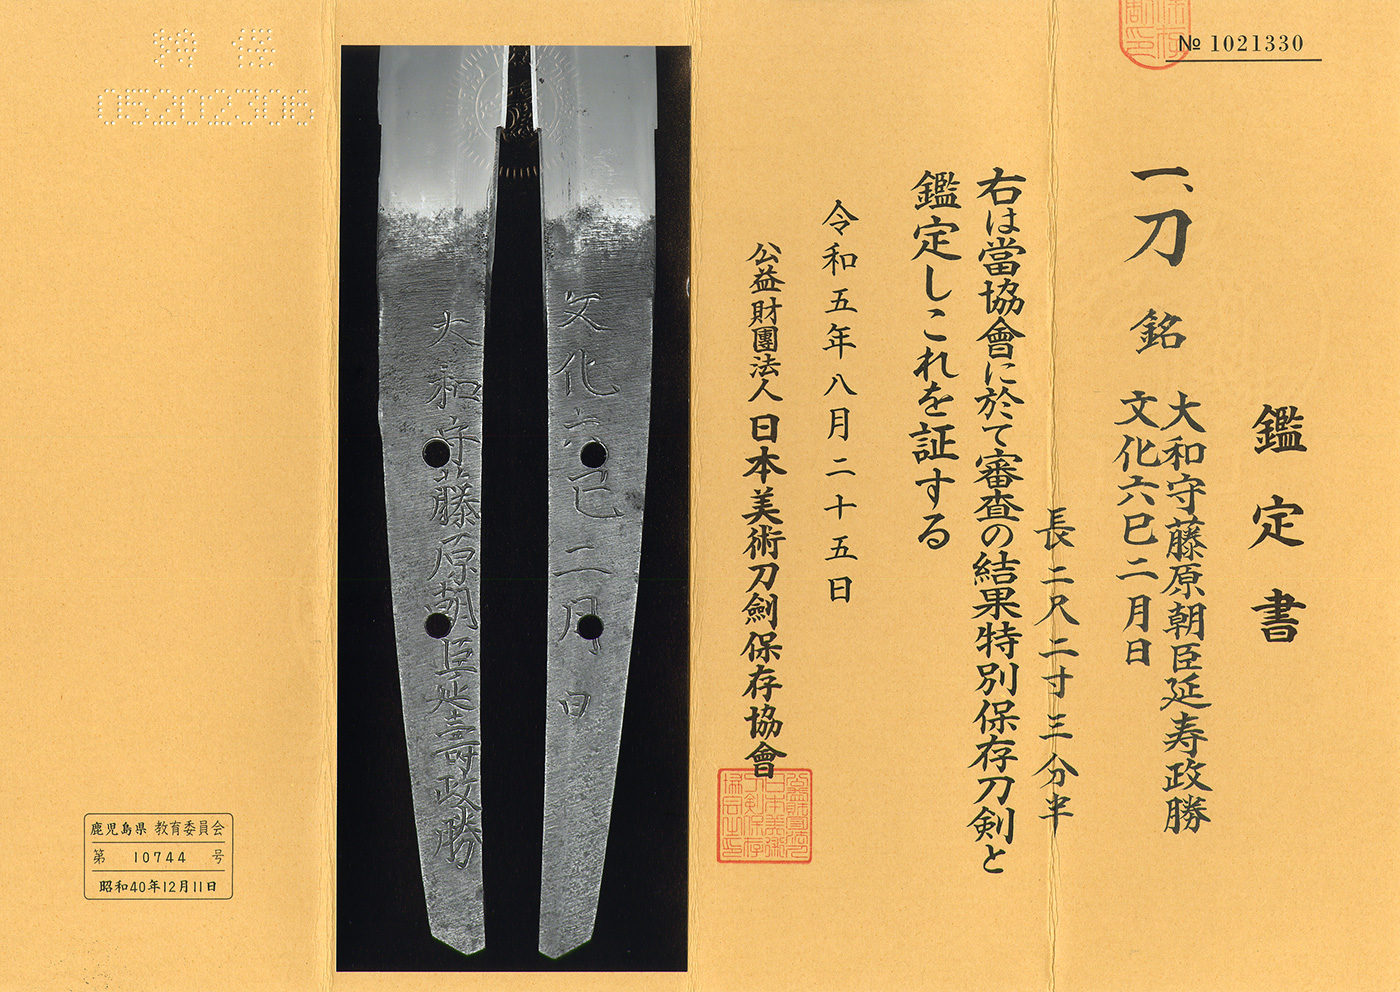 № 1021330
鑑定書
一、刀 銘 大和守藤原朝臣延寿政勝
文化六巳二月日
長二尺二寸三分半
右は當協會に於て審査の結果特別保存刀剣と
鑑定しこれを証する
令和五年八月二十五日
公益財團法人日本美術刀劍保存協會
文化六巳二月日
大和守藤原朝臣延壽政勝
05202306
鹿児島県 教育委員会
第 10744 号
昭和40年12月11日